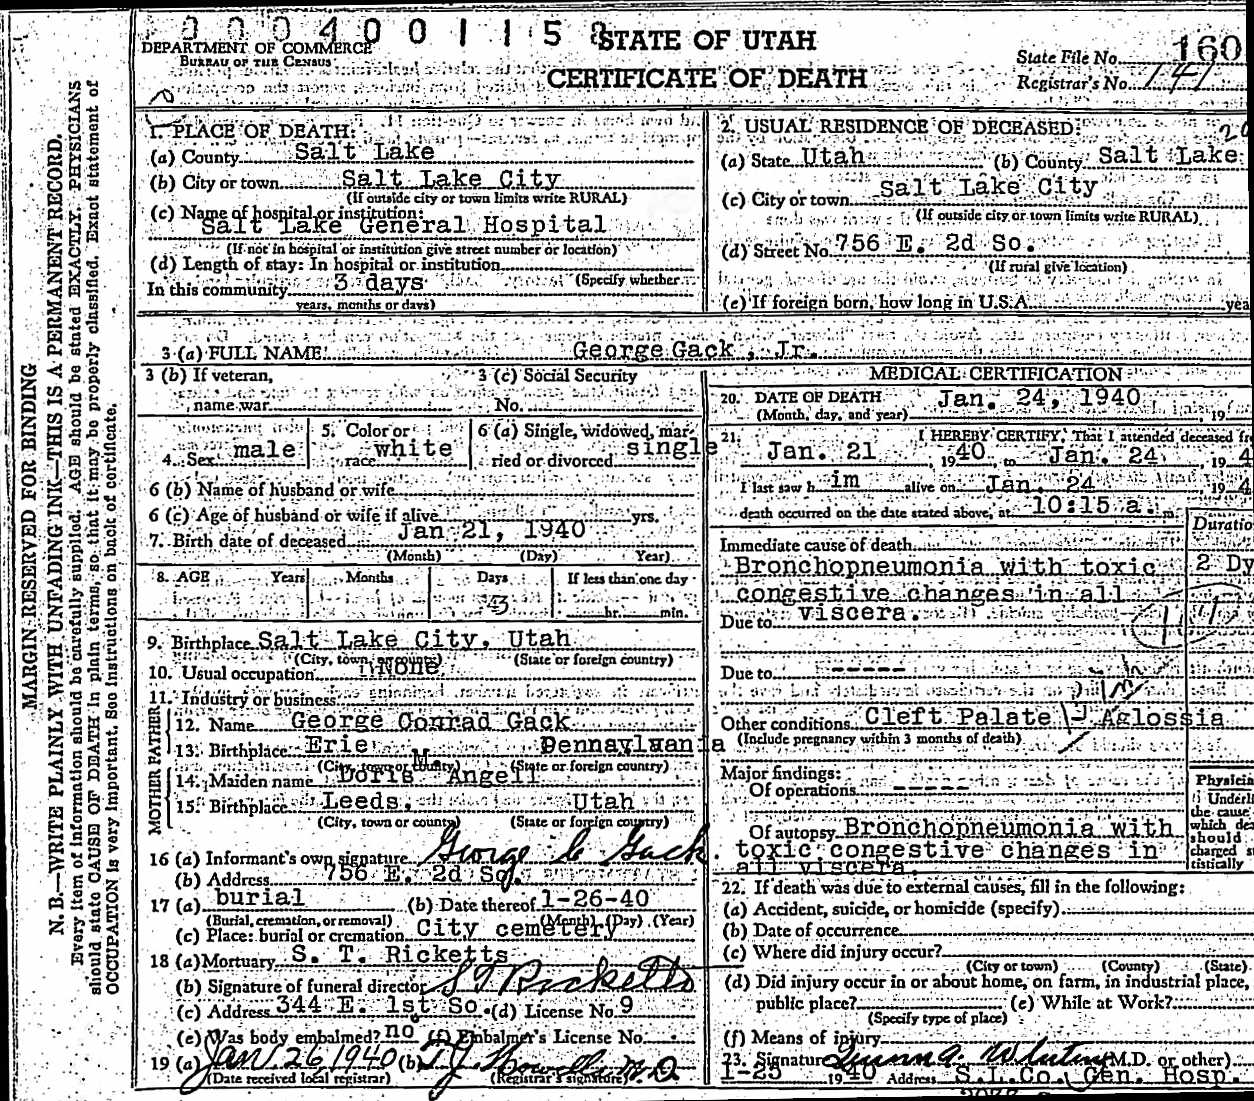 0004001158
STATE OF UTAH
CERTIFICATE OF DEATH
DEPARTMENT OF COMMERCE
BUREAU OF THE CENSUS
State File No. 160
Registrar's No. 141
MARGIN RESERVED FOR BINDING
N. B.—WRITE PLAINLY WITH UNFADING INK—THIS IS A PERMANENT RECORD.
Every item of information should be carefully supplied. AGE should be stated EXACTLY. PHYSICIANS
should state CAUSE OF DEATH in plain terms, so that it may be properly classified. Exact statement of
OCCUPATION is very important. See instructions on back of certificate.
1. PLACE OF DEATH:
(a) County Salt Lake
(b) City or town Salt Lake City
(If outside city or town limits write RURAL)
(c) Name of hospital or institution:
Salt Lake General Hospital
(If not in hospital or institution give street number or location)
(d) Length of stay: In hospital or institution
(Specify whether
In this community 3 days
years, months or days)
2. USUAL RESIDENCE OF DECEASED:
(a) State Utah (b) County Salt Lake
(c) City or town Salt Lake City
(If outside city or town limits write RURAL)
(d) Street No. 756 E. 2d So.
(If rural give location)
(e) If foreign born, how long in U.S.A. yea
3 (a) FULL NAME George Gack, Jr.
3 (b) If veteran,
name war
3 (c) Social Security
No.
4. Sex male
5. Color or race white
6 (a) Single, widowed, married or divorced single
6 (b) Name of husband or wife
6 (c) Age of husband or wife if alive yrs.
7. Birth date of deceased Jan 21, 1940
(Month) (Day) Year)
8. AGE Years Months Days If less than one day
3 hr. min.
9. Birthplace Salt Lake City, Utah
(City, town, or county) (State or foreign country)
10. Usual occupation None
11. Industry or business
FATHER
12. Name George Conrad Gack
13. Birthplace Erie Pennsylvania
(City, town or county) (State or foreign country)
MOTHER
14. Maiden name Doris M. Angell
15. Birthplace Leeds, Utah
(City, town or county) (State or foreign country)
16 (a) Informant's own signature George C Gack
(b) Address 756 E. 2d So.
17 (a) burial (b) Date thereof 1-26-40
(Burial, cremation, or removal) (Month) (Day) (Year)
(c) Place: burial or cremation City cemetery
18 (a) Mortuary S. T. Ricketts
(b) Signature of funeral director S T Ricketts
(c) Address 344 E. 1st So. (d) License No. 9
(e) Was body embalmed? no (f) Embalmer's License No.
19 (a) Jan. 26 1940 (b) T J Howells M.D.
(Date received local registrar) (Registrar's signature)
MEDICAL CERTIFICATION
20. DATE OF DEATH Jan. 24, 1940
(Month, day, and year) 19
21. I HEREBY CERTIFY, That I attended deceased fr
Jan. 21, 1940 to Jan. 24, 194
I last saw h im alive on Jan. 24 194
death occurred on the date stated above, at 10:15 a. m.
Duratio
Immediate cause of death
Bronchopneumonia with toxic 2 Dy
congestive changes in all
Due to viscera.
Due to -----
Other conditions Cleft Palate - Aglossia
(Include pregnancy within 3 months of death)
Major findings:
Of operations -----
Of autopsy Bronchopneumonia with
toxic congestive changes in
all viscera.
Physicia
Underli
the cause
which de
should
charged s
tistically
22. If death was due to external causes, fill in the following:
(a) Accident, suicide, or homicide (specify)
(b) Date of occurrence
(c) Where did injury occur?
(City or town) (County) (State)
(d) Did injury occur in or about home, on farm, in industrial place,
public place? (e) While at Work?
(Specify type of place)
(f) Means of injury
23. Signature (M.D. or other)
1-25 1940 Address S.L.Co. Gen. Hosp.